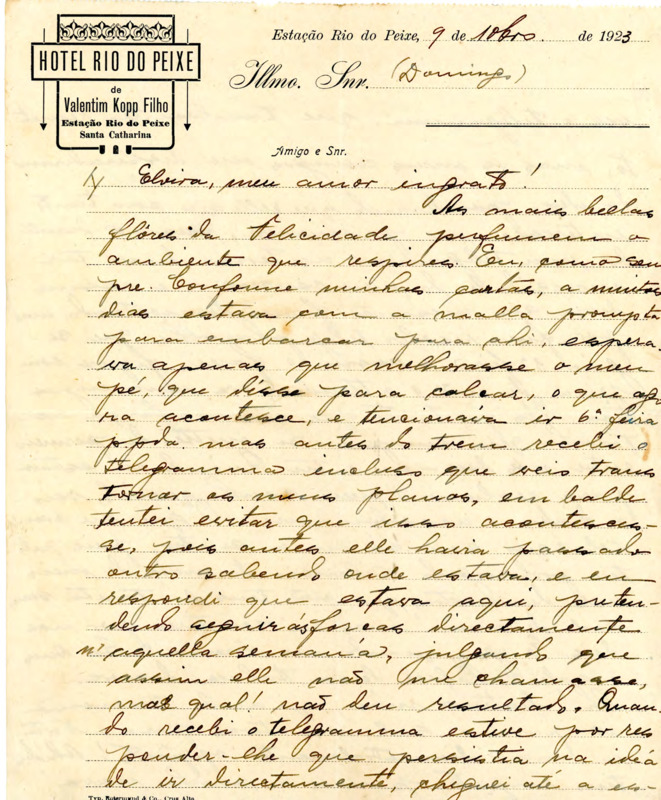 HOTEL RIO DO PEIXE
de
Valentim Kopp Filho
Estação Rio do Peixe
Santa Catharina
Estação Rio do Peixe, 9 de 10bro. de 1923
Illmo. Snr. (Domingo)
Amigo e Snr.
Elvira, meu amor ingrato!
As mais bellas
flôres da Felicidade perfumem o
ambiente que respires. Eu, como sem
pre. Conforme minhas cartas, a muitos
dias estava com a malla prompta
para embarcar para ahi, espera-
va apenas que melhorasse o meu
pé, que désse para calçar, o que ago
ra acontesce, e tencionava ir 6ª feira
ppda. mas antes do trem recebi o
telegramma incluso que veis trans
tornar os meus planos, em balde
tentei evitar que isso acontesces-
se, pois antes elle havia passado
outro sabendo onde estava, e eu
respondi que estava aqui, preten-
dendo seguir ás forcas directamente
n' aquella semana, julgando que
assim elle não me chamasse,
mas qual! não deu resultado. Quan-
do recebi o telegramma estive por res
ponder-lhe que persistia na idéa
de ir directamente, cheguei até a es-
Typ. & Co., Cruz Alta